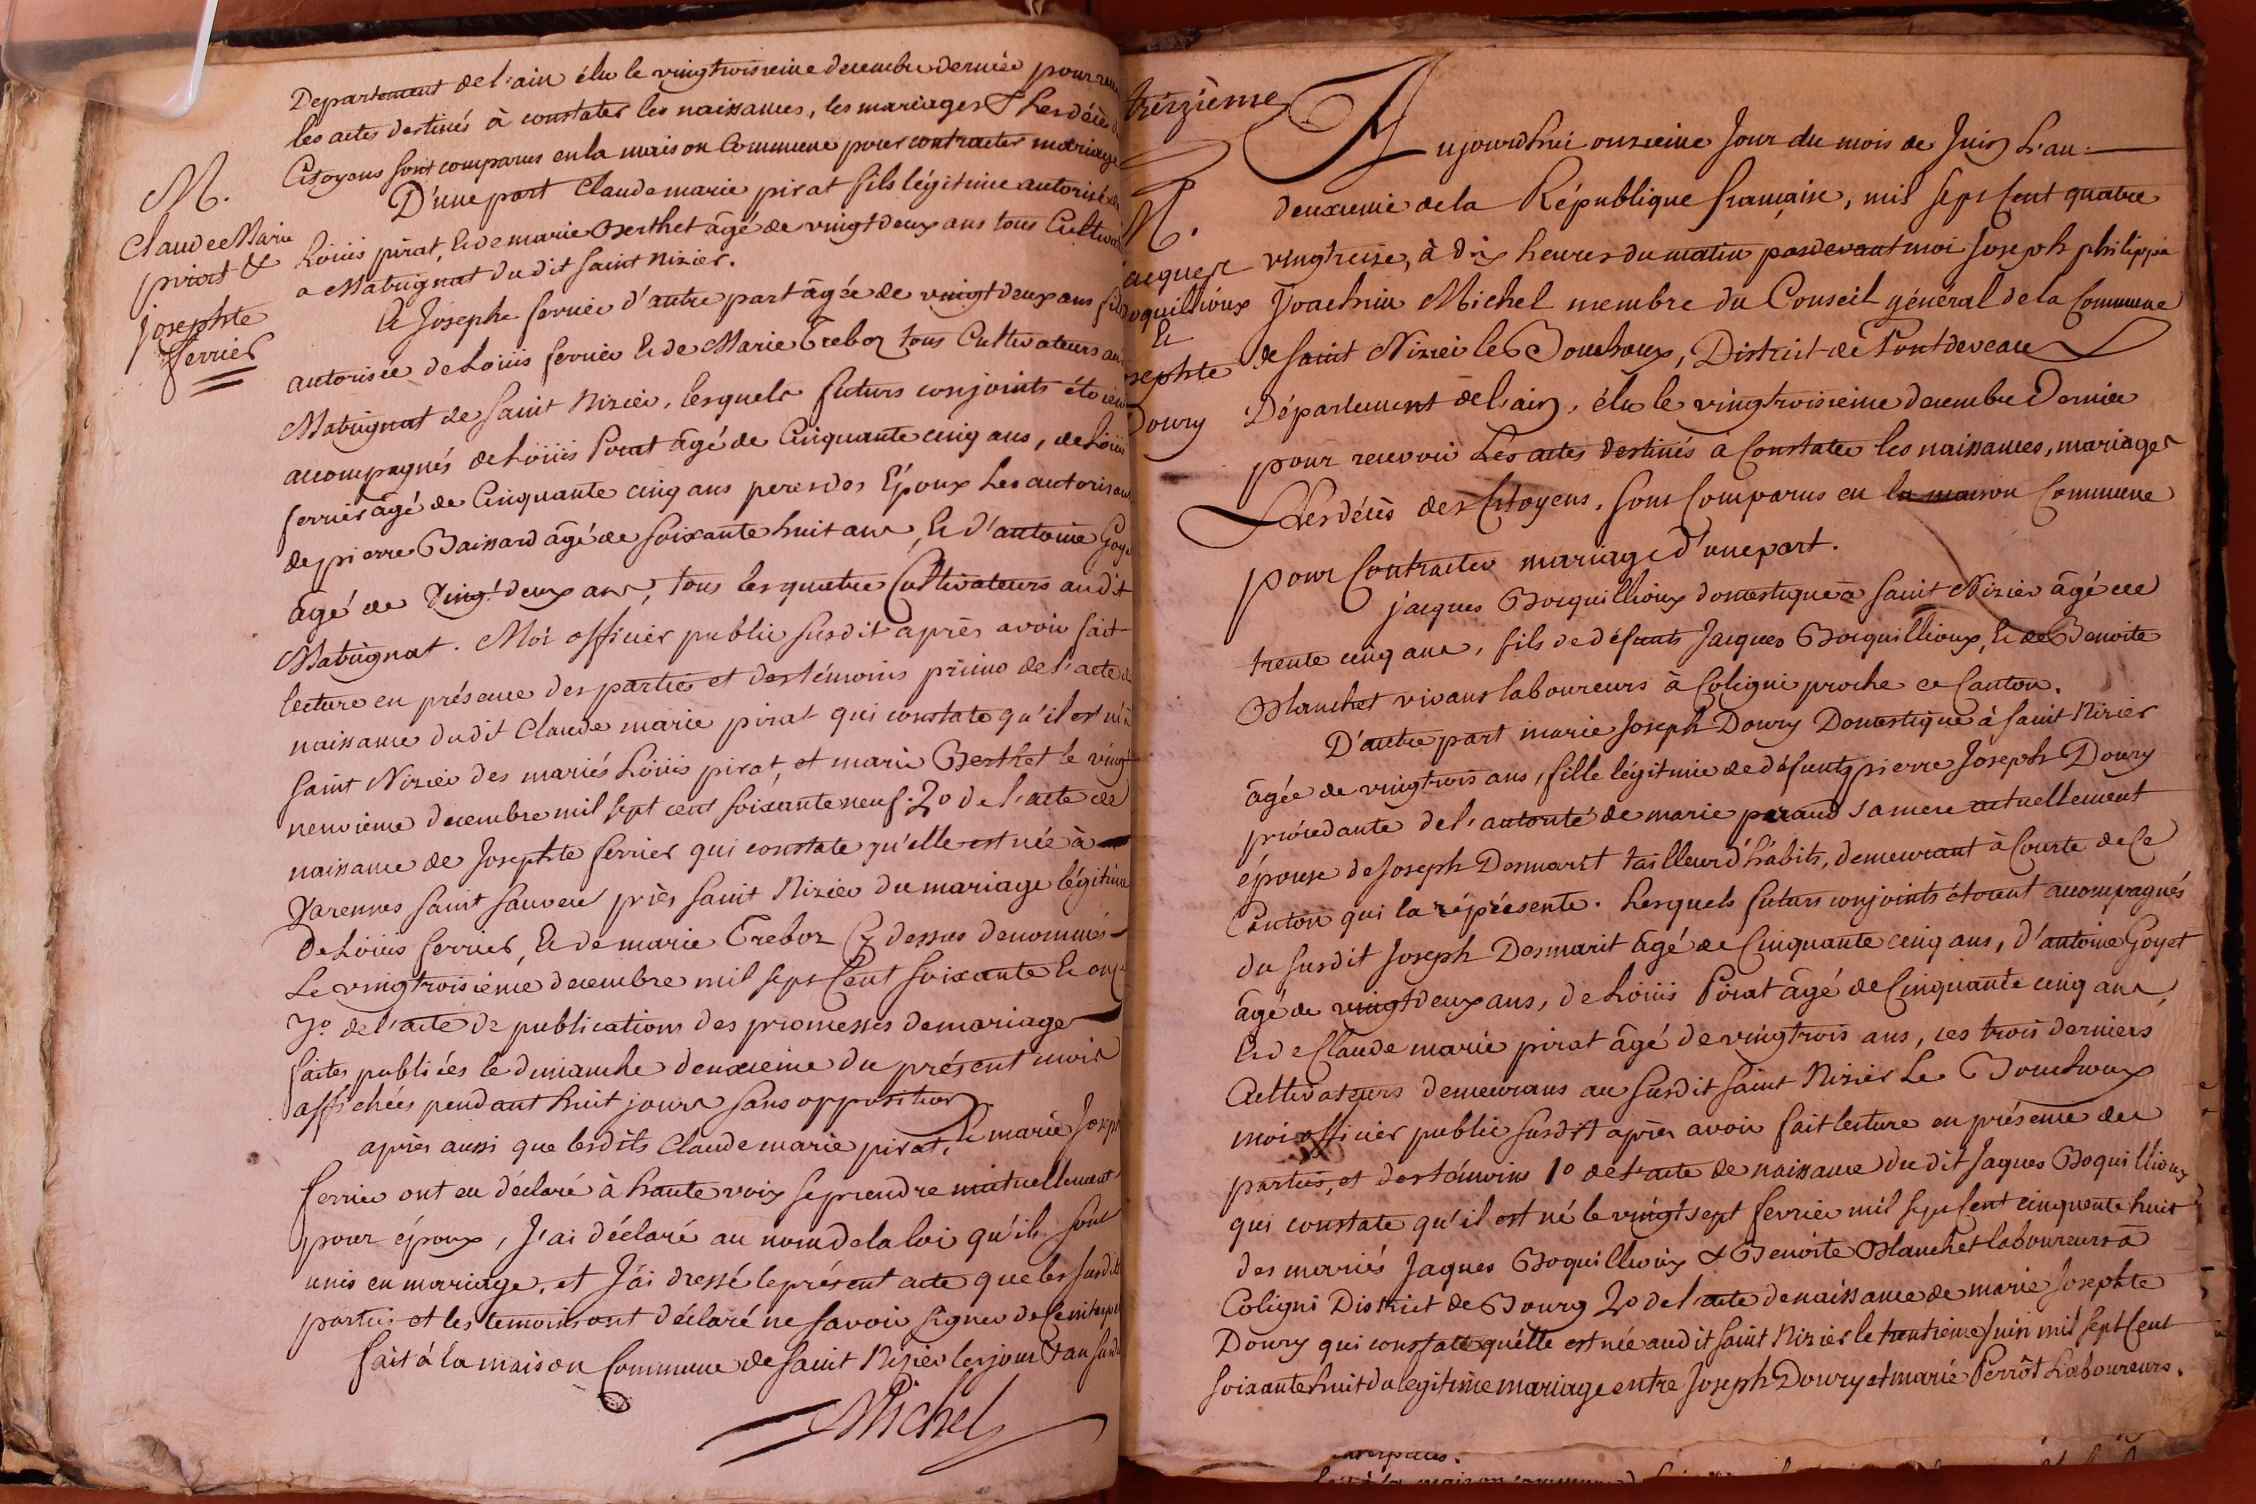 M.
Claude Marie
pirat &
josephte
ferrier
Departement de l'ain élu le vingtroisieme decembre dernier pour
les actes destinés à constater les naissances, les mariages & les décès
Citoyens sont comparus en la maison Commune pour contracter mariage
D'une part Claude marie pirat fils légitime autorisé
Loüis pirat, & de marie Berthet âgé de vingt deux ans tous
a Matrignat du dit saint nizier.
& Josephe ferrier d'autre part âgée de vingt deux ans
autorisée de Loüis ferrier & de Marie Treboz tous Cultivateurs au
Matrignat de saint Nizier, lesquels futurs conjoints
accompagnés de Loüis Pirat âgé de Cinquante cinq ans, de Loüis
ferrier âgé de Cinquante cinq ans peres des Epoux les
de pierre Baissard âgé de soixante huit ans, & d'antoine
âgé de Vingt deux ans, tous les quatre Cultivateurs audit
Matrignat. Moi officier public susdit après avoir fait
lecture en présence des parties et des témoins primo de l'acte
naissance dudit Claude marie pirat qui constate qu'il est
saint Nizier des mariés Loüis pirat, et marie Berthet le vingt
neuvieme decembre mil sept cent soixante neuf. 2º de l'acte de
naissance de Josephte ferrier qui constate qu'elle est née à
Varennes saint sauveur près saint Nizier du mariage légitime
de Loüis ferrier, & de marie Trebox Cy dessus denommés
Le vingtroisième decembre mil sept Cent soixante &
3º. de l'acte de publications des promesses de mariage
faites publiées le dimanche deuxieme du présent mois
affichées pendant huit jours sans opposition
après aussi que lesdits Claude marie pirat, & marie
ferrier ont eu déclaré à haute voix se prendre mutuellement
pour époux, J'ai déclaré au nom de la loi qu'ils sont
unis en mariage, et J'ai dressé le présent acte que les
parties et les temoins ont déclaré ne savoir signer de
fait à la maison Commune de saint Nizier les jour & an
Michel
treizième
M.
& 
Doury
Aujourdhui onzieme Jour du mois de Juin L'an
deuxieme de la République française, mil sept Cent quatre
vingtreize, à dix heures du matin pardevant moi Joseph philippe
Joachim Michel membre du Conseil général de la Commune
de saint Nizier le Bouchoux, District de Pontdeveaux
Département de l'ain, élu le vingtroisieme decembre Dernier
pour recevoir Les actes destinés à Constater les naissances, mariages
& les décès des Citoyens, sont Comparus en la maison Commune
pour Contracter mariage d'une part.
jacques Bocquillioux domestique à saint Nizier âgé de
trente cinq ans, fils de défunts Jacques Bocquillioux, & de Benoite
Blanchet vivans laboureurs à Coligni proche ce Canton.
D'autre part marie Joseph Doury Domestique à saint Nizier
âgée de vingtrois ans, fille légitime de défunt pierre Joseph Doury
procedante de l'autorité de marie sa mere actuellement
épouse de Joseph Desmarit tailleur d'habits, demeurant à Courte de Ce
Canton qui la répresente. Lesquels futurs conjoints étoient accompagnés
du susdit Joseph Desmarit âgé de Cinquante cinq ans, d'antoine Goyet
âgé de vingt deux ans, de Loüis Pirat âgé de Cinquante cinq ans,
& de Claude marie pirat âgé de vingtrois ans, ces trois derniers
Cultivateurs demeurans au susdit saint Nizier Le Bouchoux
moi officier public susdit après avoir fait lecture en présence des
parties, et des témoins 1º de l'acte de naissance du dit Jaques Boquillioux
qui constate qu'il est né le vingt sept fevrier mil sept Cent cinquante huit
des mariés Jaques Boquillioux & Benoite Blanchet laboureurs à
Coligni District de Bourg 2º de l'acte de naissance de marie Josephte
Doury qui constate qu'elle est née audit saint Nizier le trentieme Juin mil sept Cent
soixante huit du legitime mariage entre Joseph Doury et marie Perrôt Laboureurs.